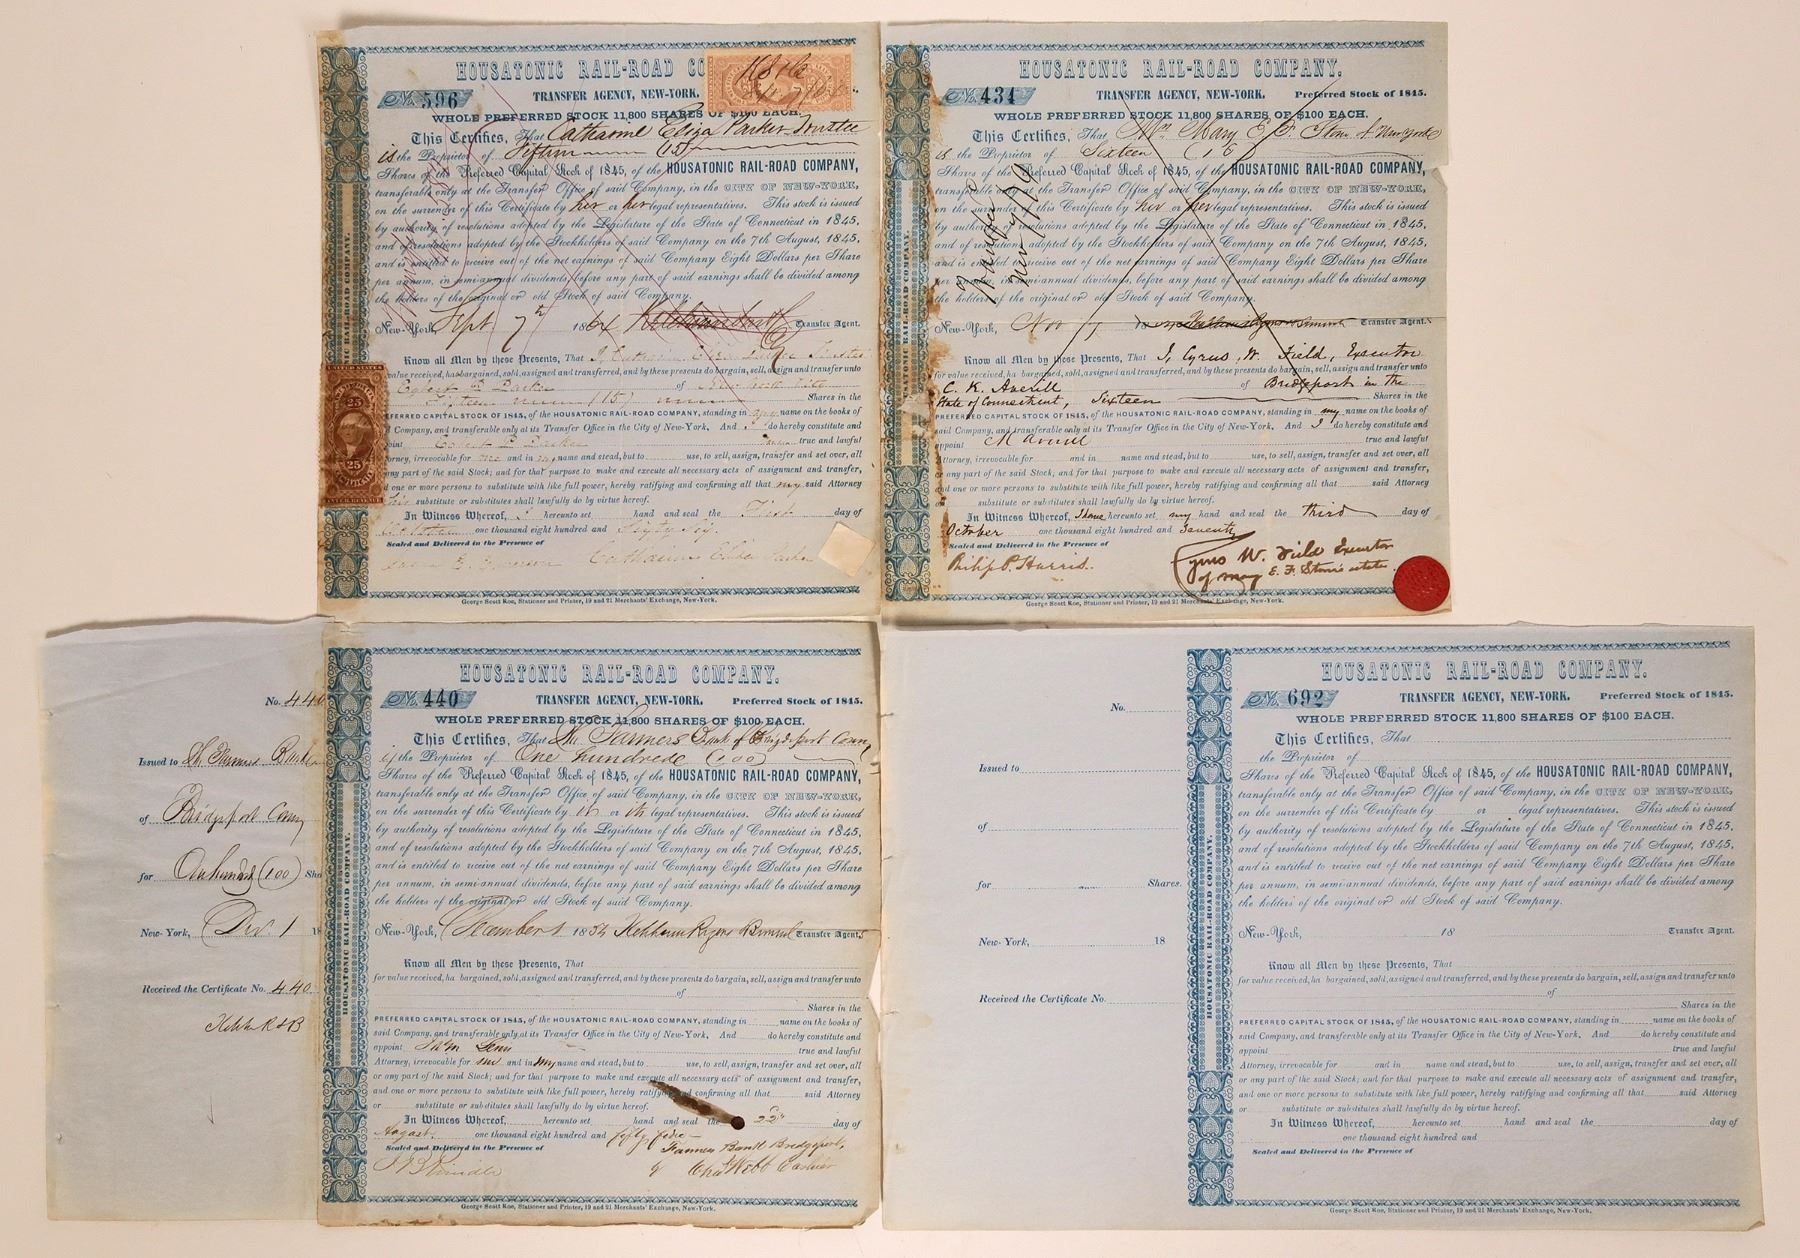 HOUSATONIC RAIL-ROAD CO
No. 596
TRANSFER AGENCY, NEW-YORK.
WHOLE PREFERRED STOCK 11,800 SHARES OF $100 EACH.
This Certifies, That Catharine Eliza Parker Trustee
is the Proprietor of Fifteen (15)
Shares of the Preferred Capital Stock of 1845, of the HOUSATONIC RAIL-ROAD COMPANY,
transferable only at the Transfer Office of said Company, in the CITY OF NEW-YORK,
on the surrender of this Certificate by her or her legal representatives. This stock is issued
by authority of resolutions adopted by the Legislature of the State of Connecticut in 1845,
and of resolutions adopted by the Stockholders of said Company on the 7th August, 1845,
and is entitled to receive out of the net earnings of said Company Eight Dollars per Share
per annum, in semi-annual dividends, before any part of said earnings shall be divided among
the holders of the original or old Stock of said Company.
New-York, Sept 7th 1864 Transfer Agent.
Know all Men by these Presents, That I, Catharine Eliza Parker Trustee
for value received, has bargained, sold, assigned and transferred, and by these presents do bargain, sell, assign and transfer unto
Egbert P. Parker of New York City
Fifteen (15) Shares in the
PREFERRED CAPITAL STOCK OF 1845, of the HOUSATONIC RAIL-ROAD COMPANY, standing in my name on the books of
said Company, and transferable only at its Transfer Office in the City of New-York. And I do hereby constitute and
true and lawful
Attorney, irrevocable for me and in my name and stead, but to use, to sell, assign, transfer and set over, all
or any part of the said Stock; and for that purpose to make and execute all necessary acts of assignment and transfer,
and one or more persons to substitute with like full power, hereby ratifying and confirming all that my said Attorney
substitute or substitutes shall lawfully do by virtue hereof.
In Witness Whereof, I hereunto set hand and seal the First day of
one thousand eight hundred and Sixty Six.
Sealed and Delivered in the Presence of
Catharine Eliza Parker
George Scott Roe, Stationer and Printer, 19 and 21 Merchants' Exchange, New-York.
HOUSATONIC RAIL-ROAD COMPANY.
UNITED STATES
25
25
HOUSATONIC RAIL-ROAD COMPANY.
No. 434
TRANSFER AGENCY, NEW-YORK. Preferred Stock of 1845.
WHOLE PREFERRED STOCK 11,800 SHARES OF $100 EACH.
This Certifies, That Mrs Mary E. F. Stone of New York
is the Proprietor of Sixteen (16)
Shares of the Preferred Capital Stock of 1845, of the HOUSATONIC RAIL-ROAD COMPANY,
transferable only at the Transfer Office of said Company, in the CITY OF NEW-YORK,
on the surrender of this Certificate by her or her legal representatives. This stock is issued
by authority of resolutions adopted by the Legislature of the State of Connecticut in 1845,
and of resolutions adopted by the Stockholders of said Company on the 7th August, 1845,
and is entitled to receive out of the net earnings of said Company Eight Dollars per Share
per annum, in semi-annual dividends, before any part of said earnings shall be divided among
the holders of the original or old Stock of said Company.
New-York, Nov 17 18 Transfer Agent.
Know all Men by these Presents, That I, Cyrus W. Field, Executor
for value received, ha bargained, sold, assigned and transferred, and by these presents do bargain, sell, assign and transfer unto
C. K. Averill of Bridgeport in the
State of Connecticut, Sixteen Shares in the
PREFERRED CAPITAL STOCK OF 1845, of the HOUSATONIC RAIL-ROAD COMPANY, standing in my name on the books of
said Company, and transferable only at its Transfer Office in the City of New-York. And I do hereby constitute and
appoint true and lawful
Attorney, irrevocable for and in name and stead, but to use, to sell, assign, transfer and set over, all
or any part of the said Stock; and for that purpose to make and execute all necessary acts of assignment and transfer,
and one or more persons to substitute with like full power, hereby ratifying and confirming all that said Attorney
substitute or substitutes shall lawfully do by virtue hereof.
In Witness Whereof, I have hereunto set my hand and seal the third day of
October one thousand eight hundred and Seventy
Sealed and Delivered in the Presence of
Philip P. Harris. Cyrus W. Field Executor
of Mary E. F. Stone's estate.
George Scott Roe, Stationer and Printer, 19 and 21 Merchants' Exchange, New-York.
No. 440
Issued to The Farmers Bank
of Bridgeport Conn
for One hundred (100) Sha
New-York, Dec. 1 18
Received the Certificate No. 440
HOUSATONIC RAIL-ROAD COMPANY.
HOUSATONIC RAIL-ROAD COMPANY.
No. 440
TRANSFER AGENCY, NEW-YORK. Preferred Stock of 1845.
WHOLE PREFERRED STOCK 11,800 SHARES OF $100 EACH.
This Certifies, That The Farmers Bank of Bridgeport Conn
is the Proprietor of One hundred (100)
Shares of the Preferred Capital Stock of 1845, of the HOUSATONIC RAIL-ROAD COMPANY,
transferable only at the Transfer Office of said Company, in the CITY OF NEW-YORK,
on the surrender of this Certificate by or legal representatives. This stock is issued
by authority of resolutions adopted by the Legislature of the State of Connecticut in 1845,
and of resolutions adopted by the Stockholders of said Company on the 7th August, 1845,
and is entitled to receive out of the net earnings of said Company Eight Dollars per Share
per annum, in semi-annual dividends, before any part of said earnings shall be divided among
the holders of the original or old Stock of said Company.
New-York, December 1 1854 Ketchum Rogers & Bement Transfer Agent.
Know all Men by these Presents, That
for value received, ha bargained, sold, assigned and transferred, and by these presents do bargain, sell, assign and transfer unto
of
Shares in the
PREFERRED CAPITAL STOCK OF 1845, of the HOUSATONIC RAIL-ROAD COMPANY, standing in name on the books of
said Company, and transferable only at its Transfer Office in the City of New-York. And do hereby constitute and
appoint true and lawful
Attorney, irrevocable for me and in my name and stead, but to use, to sell, assign, transfer and set over, all
or any part of the said Stock; and for that purpose to make and execute all necessary acts of assignment and transfer,
and one or more persons to substitute with like full power, hereby ratifying and confirming all that said Attorney
or substitute or substitutes shall lawfully do by virtue hereof.
In Witness Whereof, hereunto set hand and seal the 22d day of
August one thousand eight hundred and fifty five
Sealed and Delivered in the Presence of Farmers Bank Bridgeport,
Chas Webb Cashier
George Scott Roe, Stationer and Printer, 19 and 21 Merchants' Exchange, New-York.
No.
Issued to
of
for Shares.
New-York, 18
Received the Certificate No.
HOUSATONIC RAIL-ROAD COMPANY.
HOUSATONIC RAIL-ROAD COMPANY.
No. 692
TRANSFER AGENCY, NEW-YORK. Preferred Stock of 1845.
WHOLE PREFERRED STOCK 11,800 SHARES OF $100 EACH.
This Certifies, That
the Proprietor of
Shares of the Preferred Capital Stock of 1845, of the HOUSATONIC RAIL-ROAD COMPANY,
transferable only at the Transfer Office of said Company, in the CITY OF NEW-YORK,
on the surrender of this Certificate by or legal representatives. This stock is issued
by authority of resolutions adopted by the Legislature of the State of Connecticut in 1845,
and of resolutions adopted by the Stockholders of said Company on the 7th August, 1845,
and is entitled to receive out of the net earnings of said Company Eight Dollars per Share
per annum, in semi-annual dividends, before any part of said earnings shall be divided among
the holders of the original or old Stock of said Company.
New-York, 18 Transfer Agent.
Know all Men by these Presents, That
for value received, ha bargained, sold, assigned and transferred, and by these presents do bargain, sell, assign and transfer unto
of
Shares in the
PREFERRED CAPITAL STOCK OF 1845, of the HOUSATONIC RAIL-ROAD COMPANY, standing in name on the books of
said Company, and transferable only at its Transfer Office in the City of New-York. And do hereby constitute and
appoint true and lawful
Attorney, irrevocable for and in name and stead, but to use, to sell, assign, transfer and set over, all
or any part of the said Stock; and for that purpose to make and execute all necessary acts of assignment and transfer,
and one or more persons to substitute with like full power, hereby ratifying and confirming all that said Attorney
or substitute or substitutes shall lawfully do by virtue hereof.
In Witness Whereof, hereunto set hand and seal the day of
one thousand eight hundred and
Sealed and Delivered in the Presence of
George Scott Roe, Stationer and Printer, 19 and 21 Merchants' Exchange, New-York.